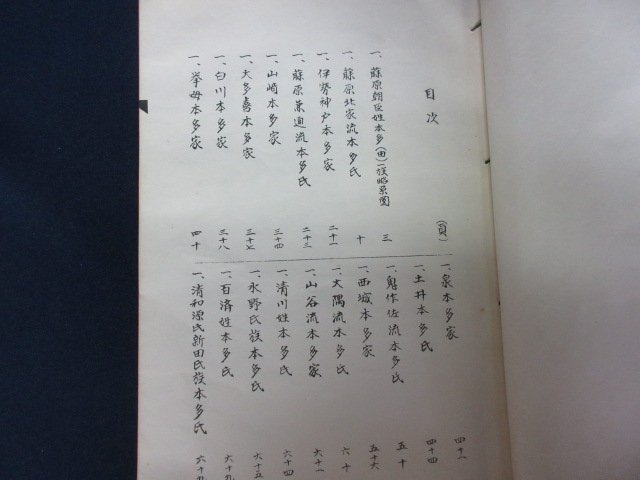 目次
(頁)
一、藤原朝臣姓本多(田)一族略系図 三
一、藤原北家流本多氏 十
一、伊勢神戸本多家 二十一
一、藤原兼通流本多氏 二十三
一、山崎本多家 三十四
一、大多喜本多家 三十七
一、白川本多家 三十八
一、挙母本多家 四十
一、泉本多家 四十一
一、土井本多氏 四十四
一、鬼作佐流本多氏 五十
一、西城本多家 五十六
一、大隅流本多氏 六十
一、山谷流本多家 六十一
一、清川姓本多氏 六十四
一、水野氏族本多氏 六十五
一、百済姓本多氏 六十九
一、清和源氏新田氏族本多氏 六十九